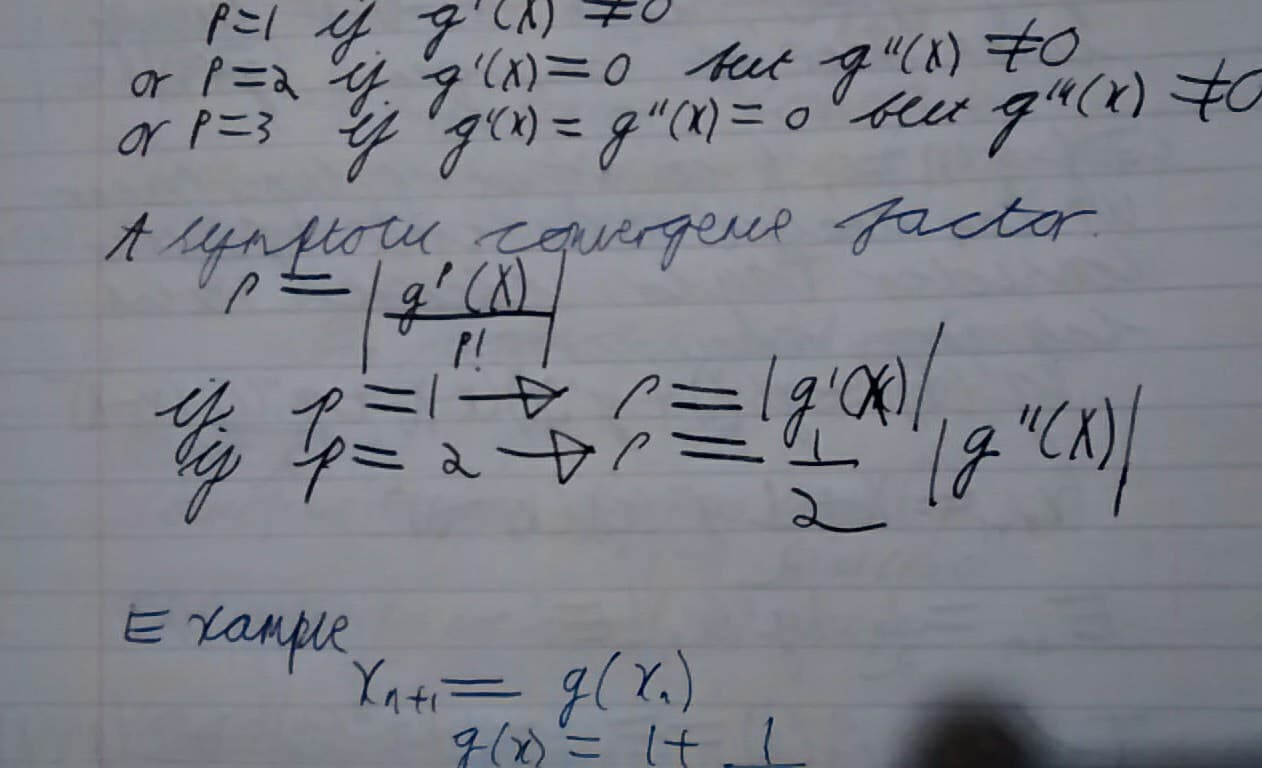 P=1 if g'(X) ≠0
or P=2 if g'(X)=0 but g''(X) ≠0
or P=3 if g'(X) = g''(X)=0 but g'''(X) ≠0
Asymptotic convergence factor.
r = |g^p(X)/P!|
if p=1 → r = |g'(X)|
if p=2 → r = 1/2 |g''(X)|
Example
x_{n+1} = g(x_n)
g(x) = 1+ 1